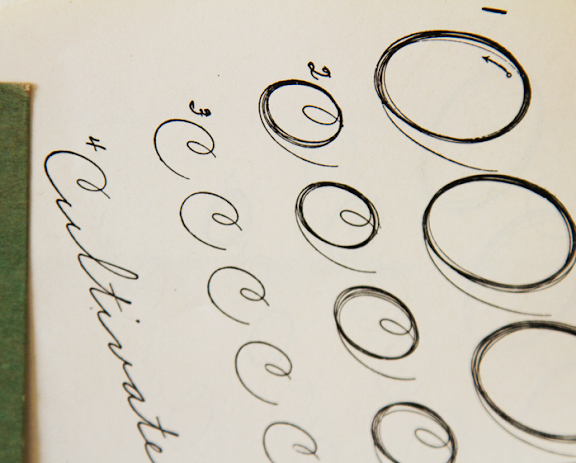 1
2
3 C C C C C
4 Cultivate